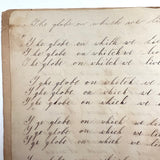 The globe on which we
The globe on which we live
The globe on which we live
The globe on which we live
The globe on which we live
The globe on which we live
The globe on which we live
The globe on which we live
The globe on which we live
The globe on which we live